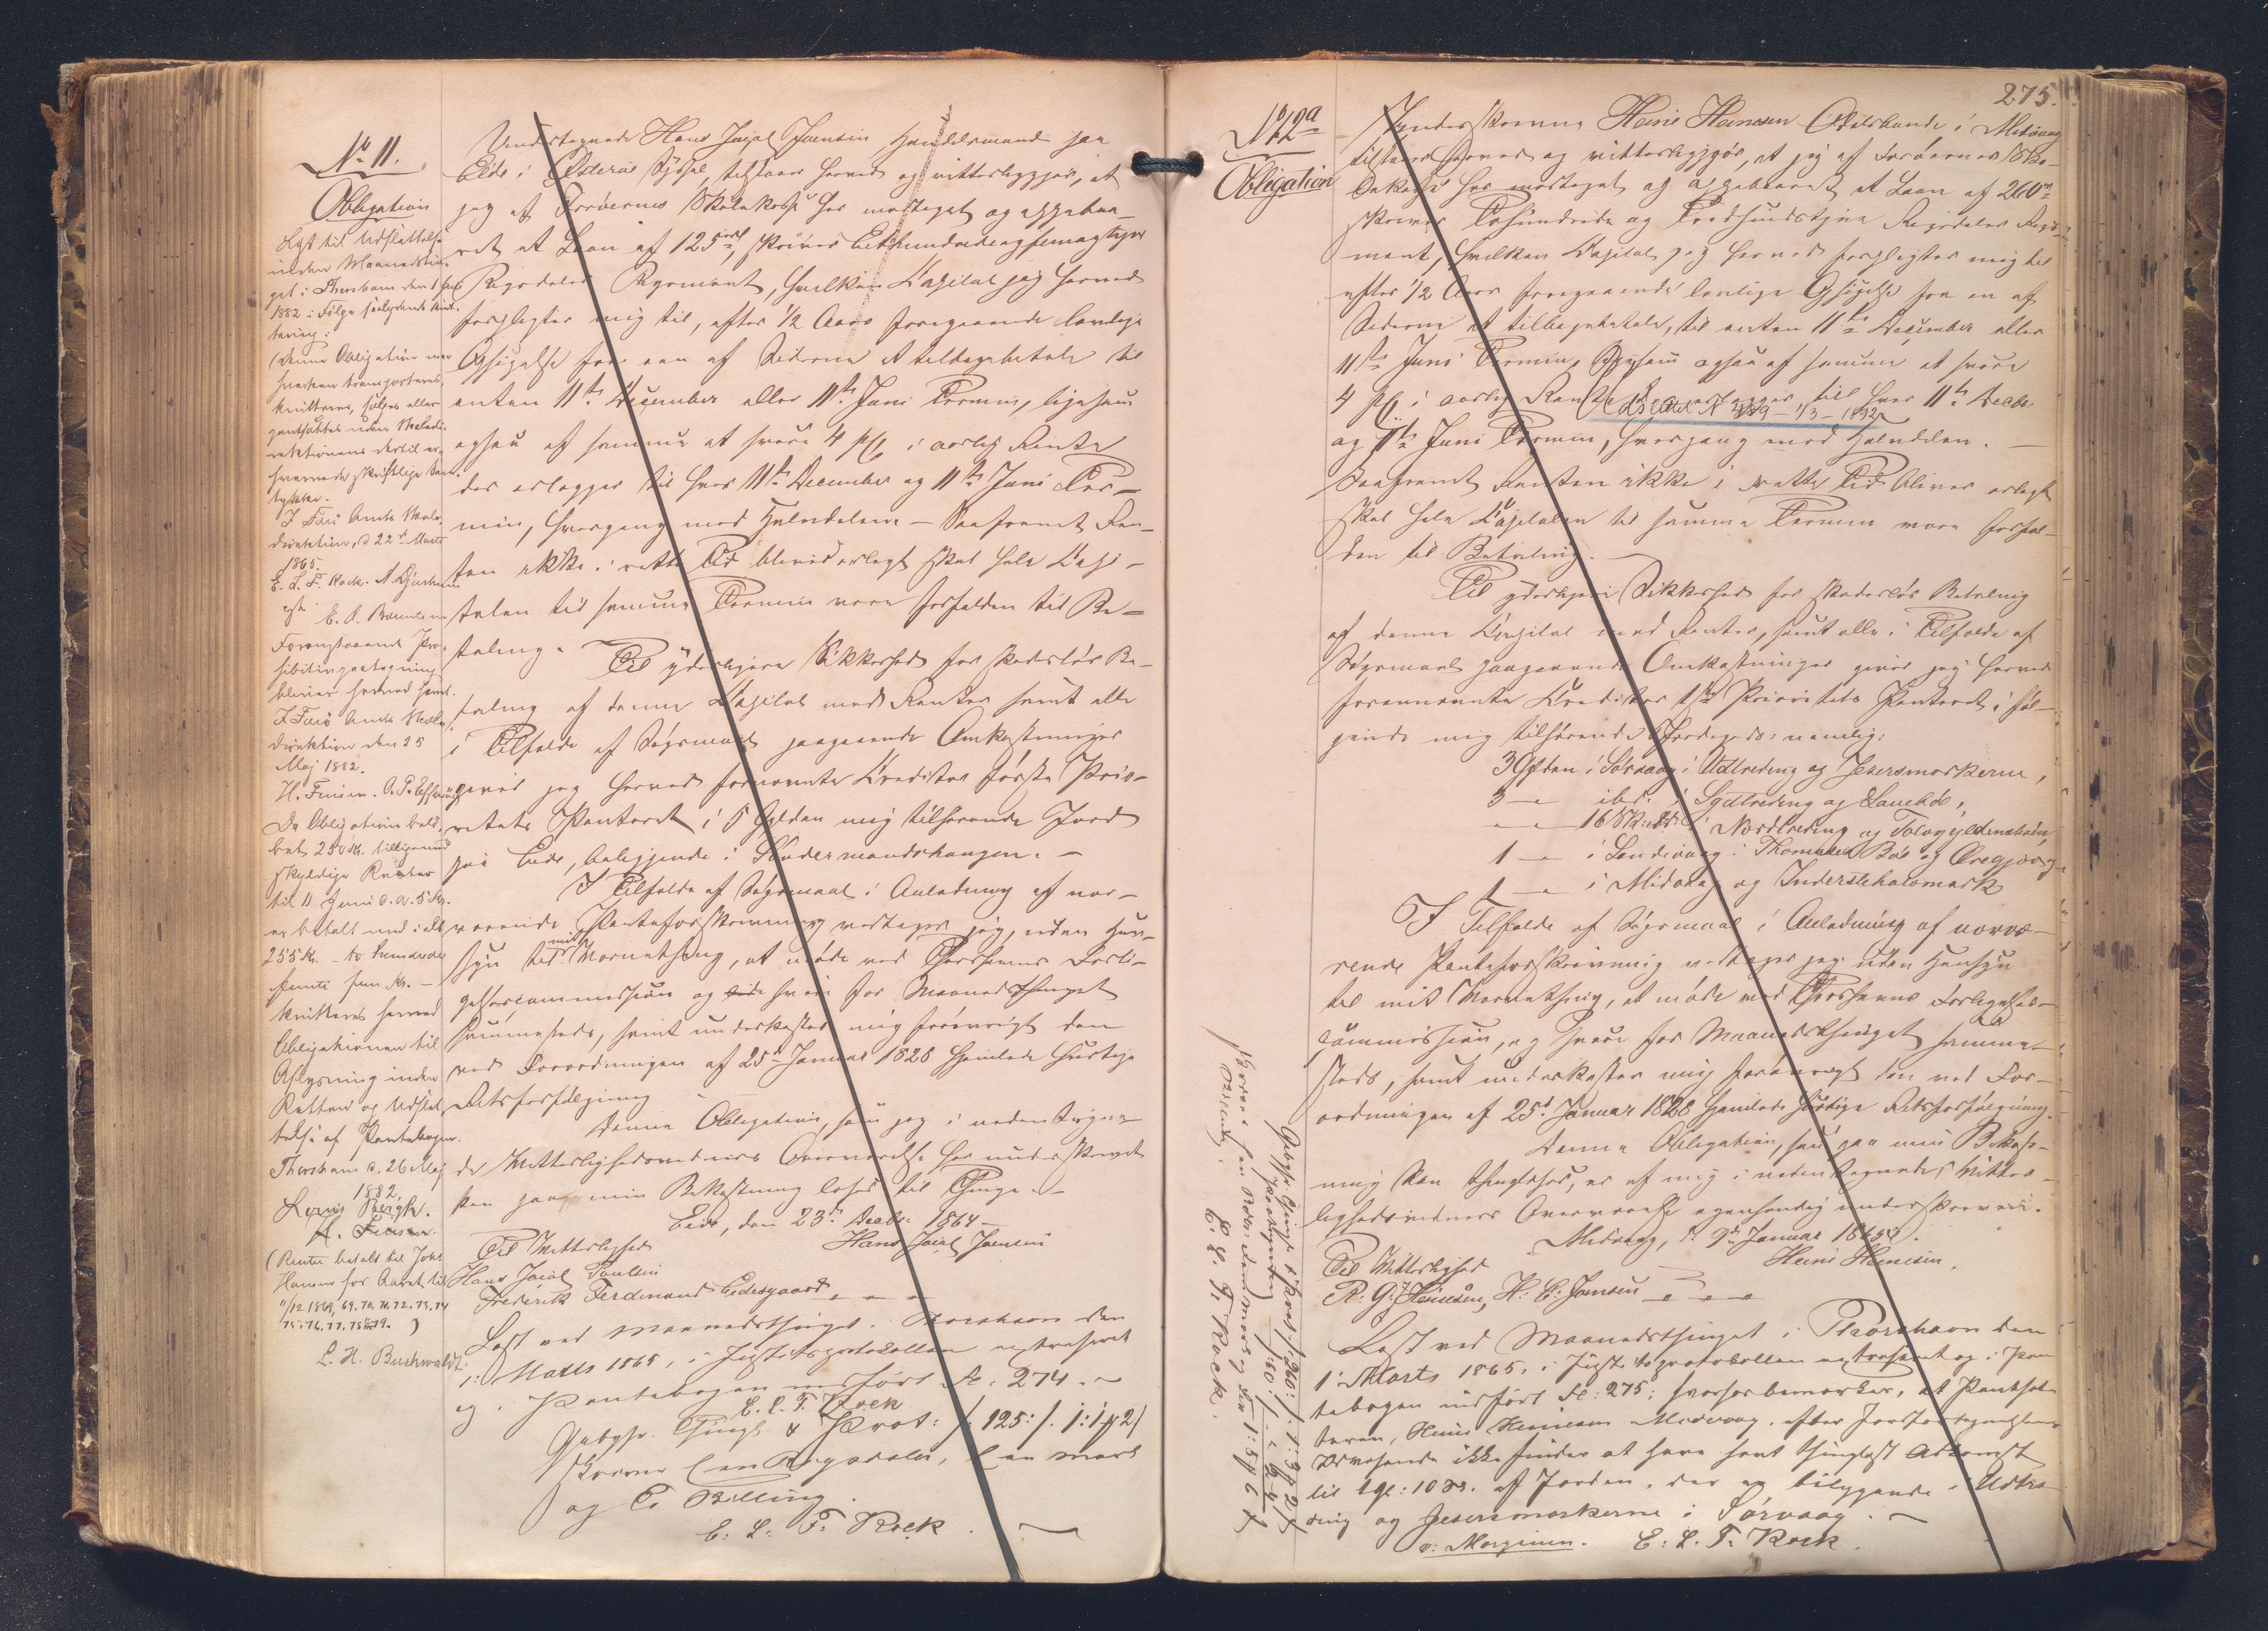 No 11.
Obligation
Lyst til Udslettelse
inden Maanedsthin-
get i Thorshavn den 1 Juni
1882 i Følge saalydende Kvit-
tering:
(Denne Obligation maa
hverken transporteres,
kvitteres, sælges eller
pantsættes uden Skoledi-
rektionens dertil er-
hvervede skriftlige Sam-
tykke.
I Færø Amts Skole-
direktion, d 22de Marts
1865.
E. L. F. Rock.
Foranstaaende Pro-
hibitivpaategning
hæves herved
I Færø Amts Skole-
direktion den 25
Maj 1882.
H. Finsen.
Da Obligationsbelø-
bet 250 Kr. tilligemed
skyldige Renter
til 11 Juni d. A. 5 Kr.
er betalt med i alt
255 Kr. – to hundrede
femti fem Kr. –
kvitteres herved
Obligationen til
Aflysning inden
Retten og Udslet-
telse af Pantebogen.
Thorshavn d. 26 Maj
1882.
Louis Bergh.
H. Finsen.
(Renter betalt til Joh.
Hansen for Aaret til
11/12 1869, 69. 70, 71, 72, 73, 74
75. 76. 77. 78 79. )
L. H. Buchwaldt.
Undertegnede Hans Jacob Joensen, Handelsmand paa
Eide i Østerø Syssel, tilstaaer herved og vitterliggjør, at
jeg af Færøernes Skolekasse har modtaget og oppebaa-
ret et Laan af 125 rd, skriver Eethundrede og femogtyve
Rigsdaler Rigsmønt, hvilken Kapital jeg herved
forpligter mig til, efter 1/2 Aars foregaaende lovlige
Opsigelse fra een af Siderne at tilbagebetale til
enten 11te December eller 11te Juni Termin, ligesom
ogsaa af samme at svare 4 pCt i aarlig Rente
der erlægges til hver 11te December og 11te Juni Ter-
min, hvergang med Halvdelen. – Saafremt Ren-
ten ikke i rette Tid bliver erlagt skal hele Kapi-
talen til samme Termin være forfalden til Be-
taling.
Til yderligere Sikkerhed for skadesløs Be-
taling af denne Kapital med Renter samt alle
i Tilfælde af Søgsmaal paagaaende Omkostninger
giver jeg herved fornævnte Kreditor første Prio-
ritets Panteret i 5 Gylden mig tilhørende Jord
paa Eide, beliggende i Søndermandshaugen. –
I Tilfælde af Søgsmaal i Anledning af nær-
værende Panteforskrivning vedtager jeg, uden Hen-
syn til mit Værnething, at møde ved Thorshavns Forli-
gelsescommission og svare for Maanedsthinget
sammesteds, samt underkaster mig forøvrigt den
ved Forordningen af 25de Januar 1828 hjemlede hurtige
Retsforfølgning
Denne Obligation, som jeg i undertegne-
de Vitterlighedsvidners Overværelse har underskrevet
kan paa min Bekostning læses til Thinge. –
Eide, den 23de Decbr 1864 –
Til Vitterlighed Hans Jacob Joensen
Hans Jacob Poulsen
Frederik Ferdinand Eidesgaard
Læst ved Maanedsthinget i Thorshavn den
1: Marts 1865, i Justitsprotocollen extraheret
og i Pantebogen indført Fo. 274. –
E. L. F. Rock
Gebyr. Thingl & Prot: /: 125: /. 1: 1 β 2/
skriver Een Rigsdaler, Een Mark
og To Skilling.
E: L: F: Rock.
275.
No 12a
Obligation
Underskrevne Heine Heinesen Odelsbonde i Midvaag
tilstaaer herved og vitterliggjør, at jeg af Færøernes Sko-
lekasse har modtaget og oppebaaret et Laan af 260 rd
skriver Tohundrede og Tredsindstyve Rigsdaler Rigs-
mønt, hvilken Kapital jeg herved forpligter mig til
efter 1/2 Aars foregaaende lovlige Opsigelse fra en af
Siderne at tilbagebetale, til enten 11te December eller
11te Juni Termin, ligesom ogsaa af samme at svare
4 pCt i aarlig Rente der erlægges til hver 11te Decbr.
Udslettet N 439 – 1/3 – 1892
og 11te Juni Termin, hvergang med Halvdelen. –
Saafremt Renten ikke i rette Tid bliver erlagt
skal hele Kapitalen til samme Termin være forfal-
den til Betaling. –
Til yderligere Sikkerhed for skadesløs Betaling
af denne Kapital med Renter, samt alle i Tilfælde af
Søgsmaal paagaaende Omkostninger giver jeg herved
fornævnte Kreditor 1ste Prioritets Panteret i føl-
gende mig tilhørende Jordegods: nemlig:
3 Gylden i Sørvaag i Udtreding og Jesersmørkerne,
3 – ibd. i Sydtreding og Lanebø,
– – 16 Sk: ibd. i Nordtreding og Tolvgyldenshøin,
1 – i Sandevaag i Thomases Bø og Øregjorg
1 – i Midvaag og Inderstehalvmark
I Tilfælde af Søgsmaal i Anledning af nærvæ-
rende Panteforskrivning vedtager jeg uden Hensyn
til mit Værnething, at møde ved Thorshavns Forligelses-
commission, og svare for Maanedsthinget samme-
steds, samt underkaster mig forøvrigt den ved For-
ordningen af 25de Januar 1828 hjemlede hurtige Retsforfølgning.
Denne Obligation, som paa min Bekost-
ning kan thinglæses, er af mig i undertegnede Vitter-
lighedsvidners Overværelse egenhændig underskreven.
Midvaag, d. 9de Januar 1865.
Til Vitterlighed Heine Heinesen.
R. G. J. Heinesen, H. C. Joensen
Læst ved Maanedsthinget i Thorshavn den
1: Marts 1865, i Justitsprotokollen extraheret og i Pan-
tebogen indført Fo: 275; hvorfor bemærkes, at Pantsæt-
teren, Heine Heinesen Midvaag, efter
Udvisende ikke findes at have havt thinglæst Adkomst
til 1 gl: 10 Sk. af Jorden, der er beliggende i Udtre-
ding og Jesersmørkerne i Sørvaag. –
v: Marginen. E: L: F: Rock.
E. L. F. Rock.